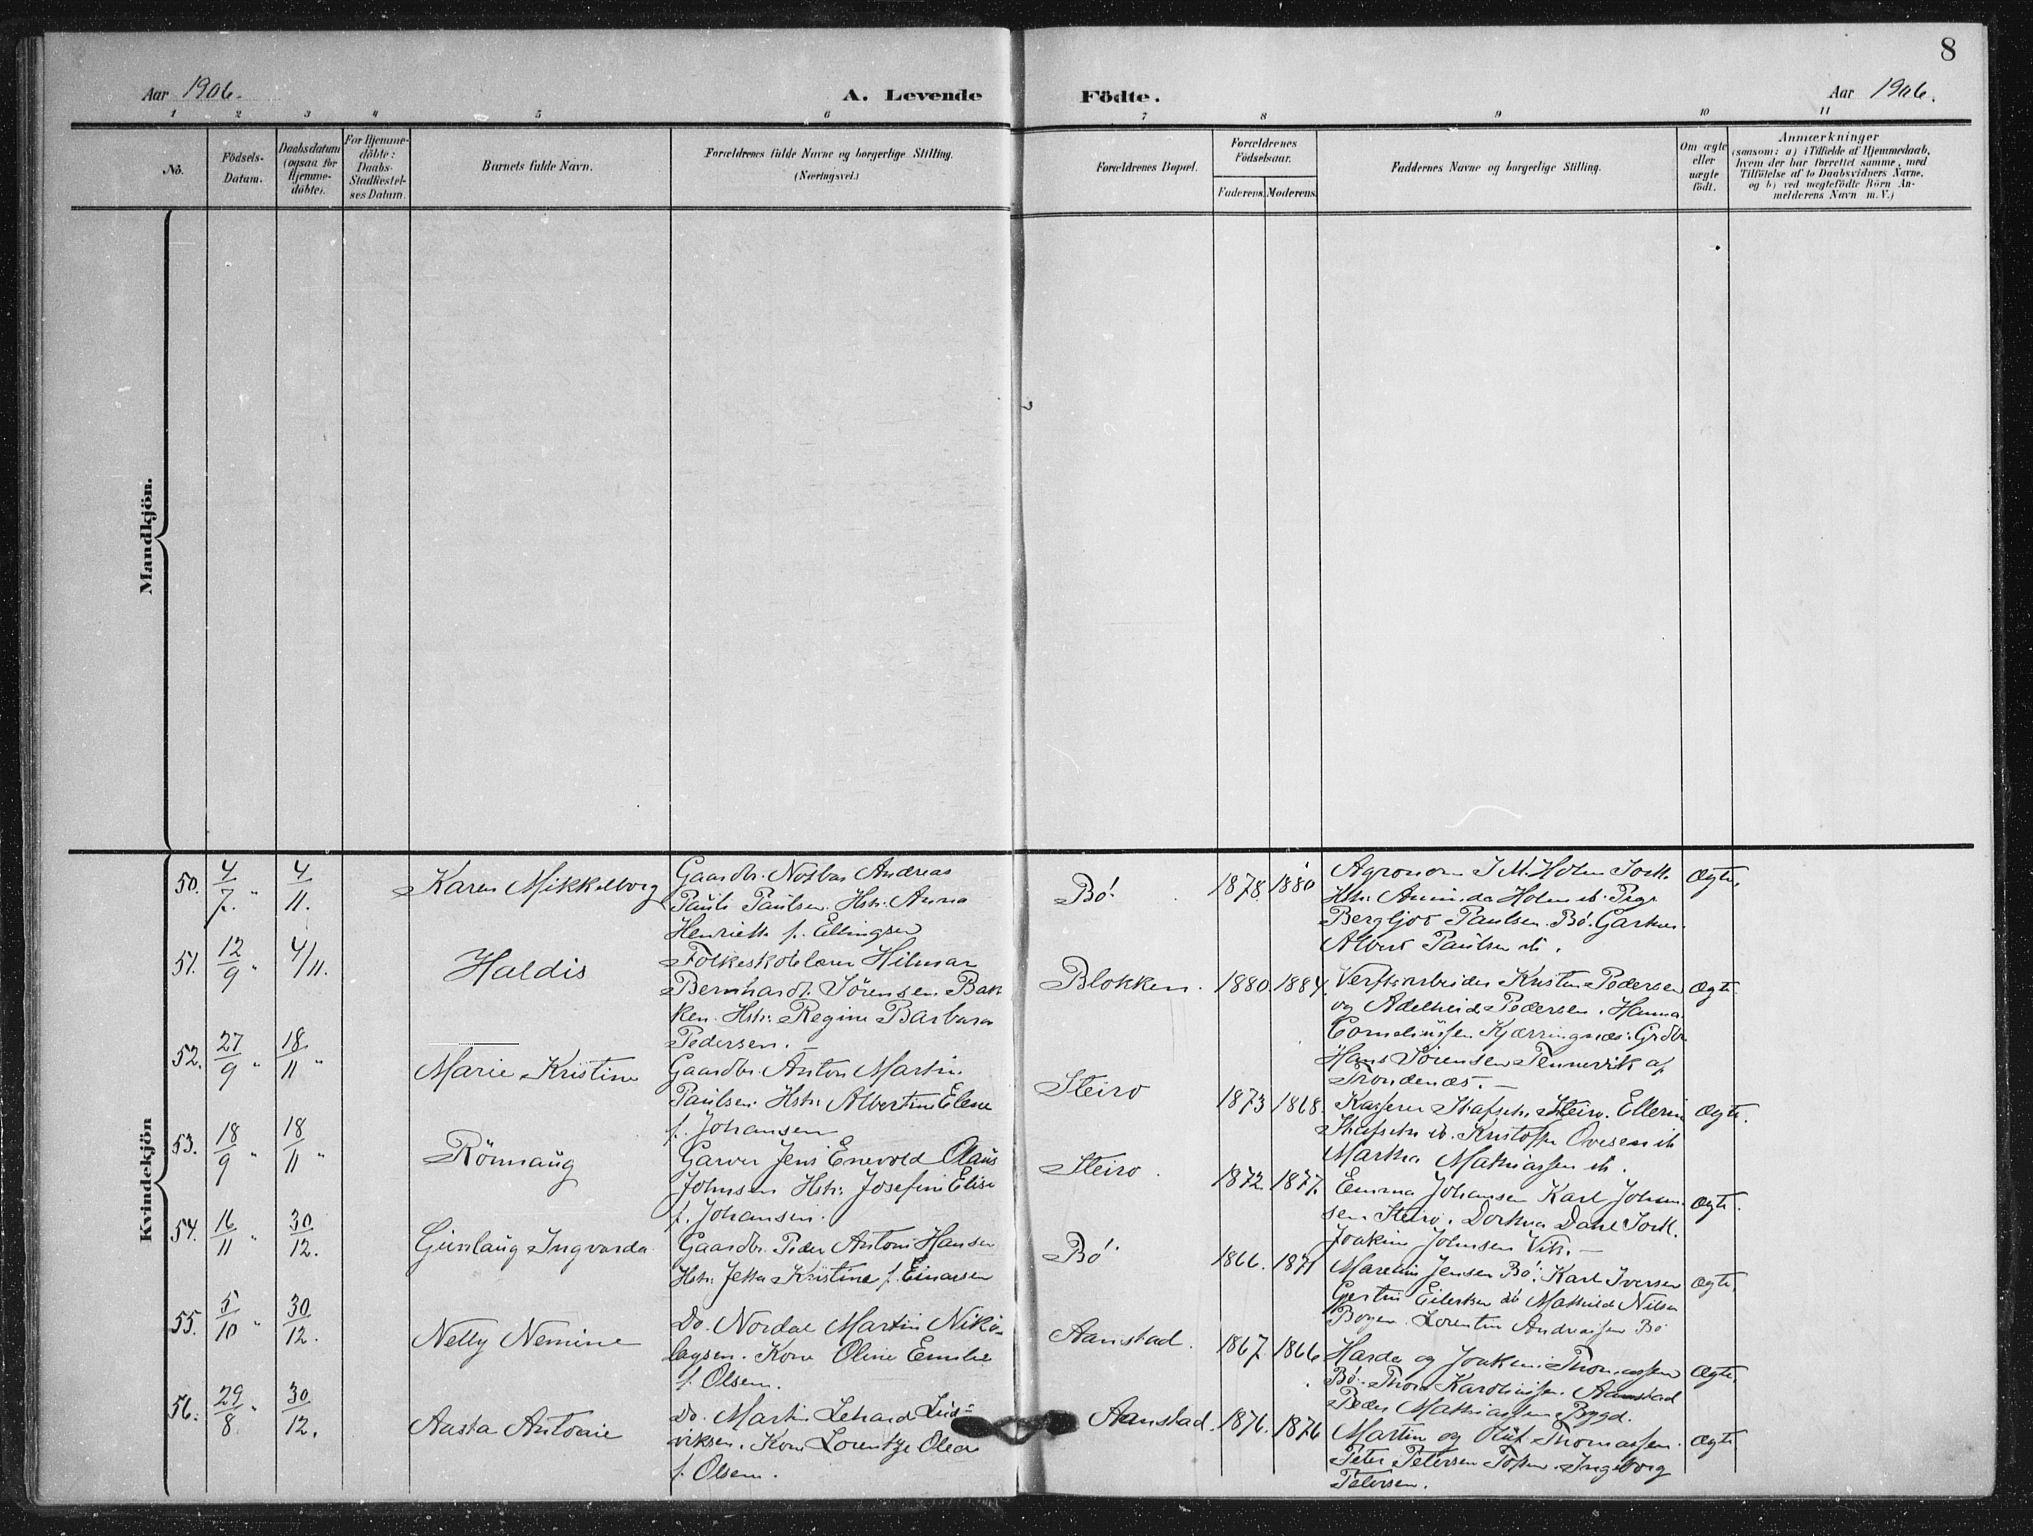 8
Aar 1906.
A. Levende
Födte.
Aar 1906.
1 2 3 4 5 6 7 8 9 10 11
No.
Födsels-
Datum.
Daabsdatum
(ogsaa for
Hjemme-
döbte).
For Hjemme-
döbte:
Daabs-
Stadfæstel-
ses Datum.
Barnets fulde Navn.
Forældrenes fulde Navne og borgerlige Stilling.
(Næringsvei.)
Forældrenes Bopæl.
Forældrenes
Födselsaar.
Faderens. Moderens.
Faddernes Navne og borgerlige Stilling.
Om ægte
eller
uægte
födt.
Anmærkninger
(saasom: a) i Tilfælde af Hjemmedaab,
hvem der har forrettet samme, med
Tilföielse af to Daabsvidners Navne,
og b) ved uægtefödte Börn An-
melderens Navn m. V.)
Mandkjön.
Kvindekjön
50. 4/7 " 4/11.
Karen Mikkelborg
Gaardbr. Andreas
Pauli Paulsen. Hstr. Anna
Henriette f. Ellingsen
Bö.
1878. 1880
Agronom J. M. Holm
Holm
Bergljot Paulsen. Bö.
Albert Paulsen
Ægte.
51. 12/9 " 4/11.
Haldis
Folkeskolelærer Hilmar
Bernhardt Sörensen Bak-
ken. Hstr. Regine Barbara
Pedersen.
Blokken.
1880. 1884.
Verftsarbeider Kristen Pedersen
og Adelheid Pedersen. Hanna
Corneliussen Kjærringnæs. Grdbr.
Hans Sörensen Tennevik af
Trondenæs.
Ægte.
52. 27/9 " 18/11 "
Marie Kristine
Gaardbr. Anton Martin
Paulsen. Hstr. Albertine Elene
f. Johansen
Steiro
1873 1868.
Kasserer Steiro.
Kristoffer Ovesen
Martha Mathiassen
Ægte.
53. 18/9 18/11 "
Rönnaug
Garver Jens Enevold Olaus
Johnsen Hstr. Josefine Elise
f. Johansen.
Steiro.
1872. 1877.
Emma Johansen Karl Johan-
sen Steiro. Dorthea Dahl
Joakim Johnsen Vik.
Ægte.
54. 16/11 " 30/12.
Gunlaug Ingvarda
Gaardbr. Peder Antoni Hansen
Hstr. Kristine f. Einarsen
Bö
1866. 1871
Jensen Bö. Karl Iversen
Mathilde Nilsen
Andreassen Bö
Ægte.
55. 5/10 " 30/12.
Nelly Nemine
Do. Nordal Martin Niko-
laysen. Kone Oline Emilie
f. Olsen.
Aanstad.
1867. 1866
og Joakim Thomassen
Bö. Aanstad
Peder Mathiassen Bygd.
Ægte.
56. 29/8 " 30/12.
Aasta Antonie
Do. Martin Lud-
viksen. Kone Lorentze Olea
f. Olsen.
Aanstad.
1876. 1876
Martin og Thomassen.
Peter Petersen Ingeborg
Petersen.
Ægte